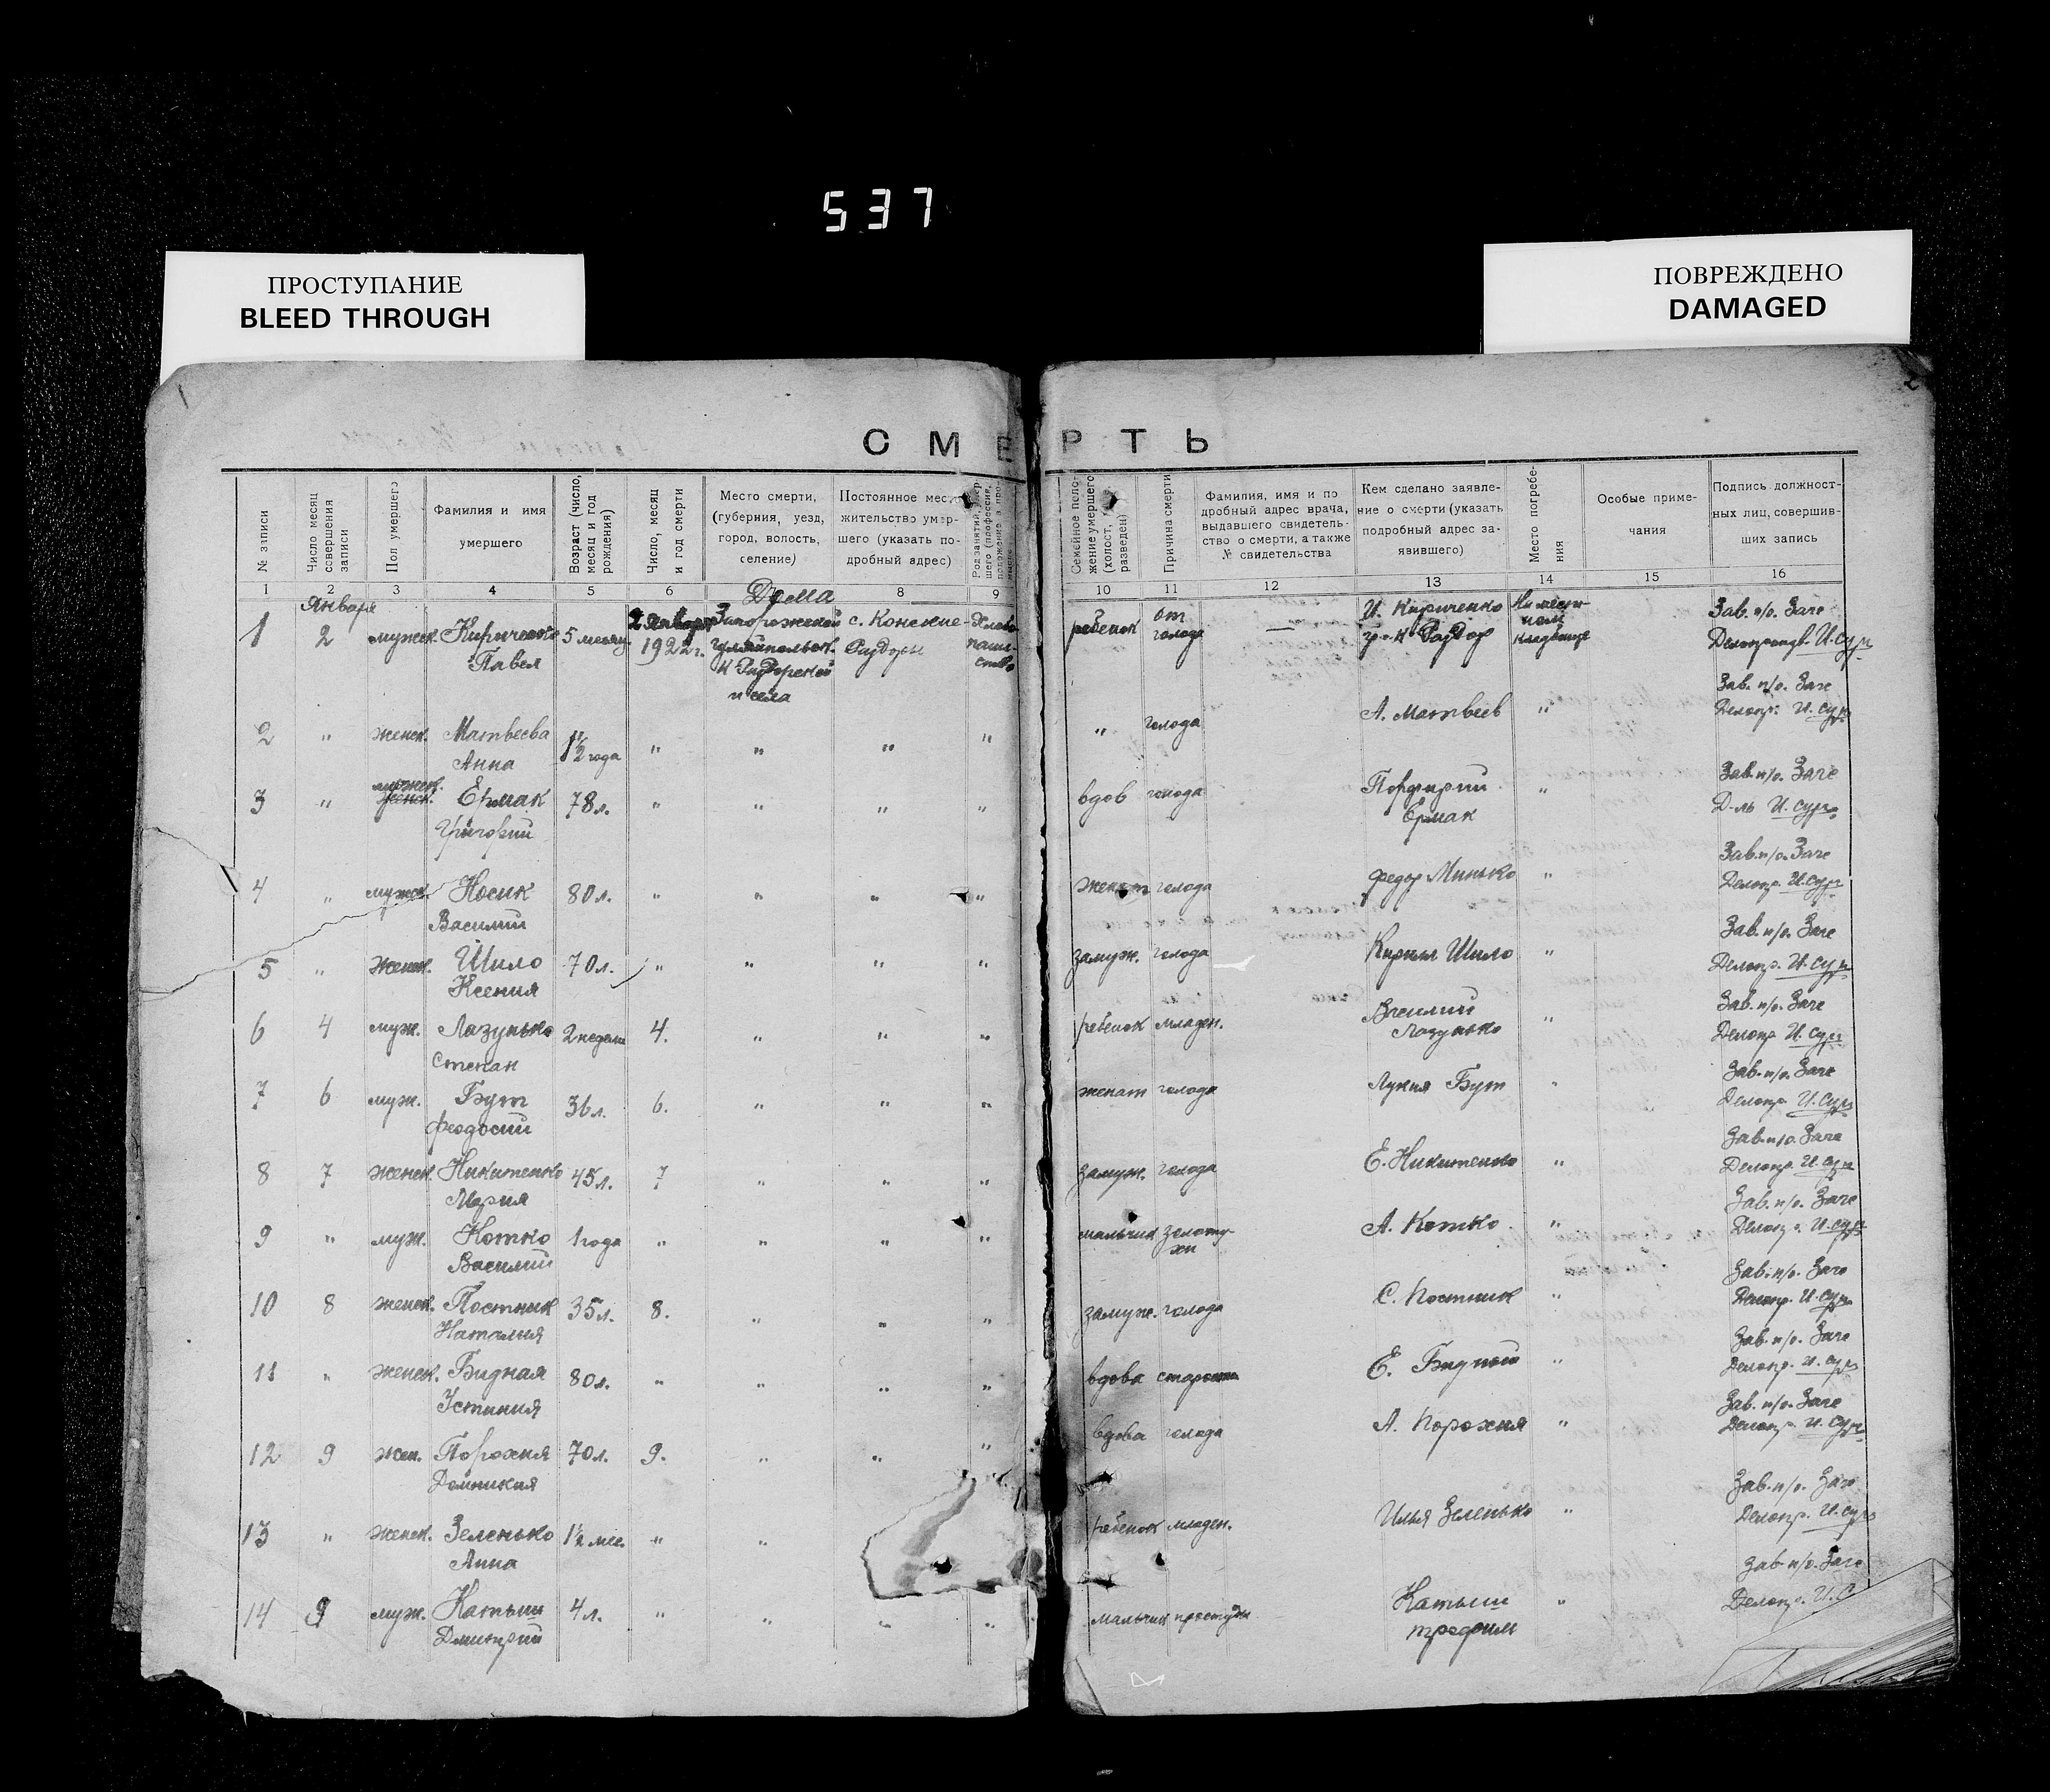 537
ПРОСТУПАНИЕ
BLEED THROUGH
ПОВРЕЖДЕНО
DAMAGED
1
2
СМЕРТЬ
№ записи
Число месяц совершения записи
Пол умершего
Фамилия и имя умершего
Возраст (число, месяц и год рождения)
Число, месяц и год смерти
Место смерти, (губерния, уезд, город, волость, селение)
Постоянное место жительство умершего (указать подробный адрес)
Семейное положение умершего (холост, разведен)
Причина смерти
Фамилия, имя и подробный адрес врача, выдавшего свидетельство о смерти, а также № свидетельства
Кем сделано заявление о смерти (указать подробный адрес заявившего)
Место погребения
Особые примечания
Подпись должностных лиц, совершивших запись
1 2 3 4 5 6 7 8 9 10 11 12 13 14 15 16
Января Дома
1 2 мужск. Кириченко 5 месяц. 2 января Запорожской с. Конские- Хлебо- ребенок от голода — И. Кириченко На мест- Зав. п/о. Заге
Павел 1922 г. гуляйпольск. Раздоры паше- гр-н Раздор ном Делопроизв. И. Сур
К Раздорской ство кладбище
и села
2 " женск. Матвеева 1½ года " " " " " голода А. Матвеев " Зав. п/о. Заге
Анна Делопр. И. Сур
3 " мужск. женск. Ермак 78 л. " " " " вдов голода Порфирий " Зав. п/о. Заге
Григорий Ермак Д-ль И. Сур
4 " мужск. Носик 80 л. " " " " женат голода Федор Минько " Зав. п/о. Заге
Василий Делопр. И. Сур
5 " женск. Шило 70 л. " " " " замуж. голода Кирилл Шило " Зав. п/о. Заге
Ксения Делопр. И. Сур
6 4 муж. Лазунько 2 недели 4. " " " ребенок младен. Василий " Зав. п/о. Заге
Степан Лазунько Делопр. И. Сур
7 6 муж. Бут 36 л. 6. " " " женат голода Лукия Бут " Зав. п/о. Заге
Феодосий Делопр. И. Сур
8 7 женск. Никитенко 45 л. 7 " " " замуж. голода Е. Никитенко " Зав. п/о. Заге
Мария Делопр. И. Сур
9 " муж. Котко 1 года " " " " мальчик золоту- А. Котко " Зав. п/о. Заге
Василий хи Делопр. И. Сур
10 8 женск. Постник 35 л. 8. " " " замуж. голода С. Постник " Зав. п/о. Заге
Наталия Делопр. И. Сур
11 " женск. Бидная 80 л. " " " " вдова старости Е. Бидный " Зав. п/о. Заге
Устиния Делопр. И. Сур
12 9 жен. Порохня 70 л. 9. " " " вдова голода А. Порохня " Зав. п/о. Заге
Домникия Делопр. И. Сур
13 " женск. Зеленько 1½ мес. " " ребенок младен. Илья Зеленько " Зав. п/о. Заге
Анна Делопр. И. Сур
14 9 муж. Катыш 4 л. " " " " мальчик простуды Катыш " Зав. п/о. Заге
Дмитрий Трофим Делопр. И. С